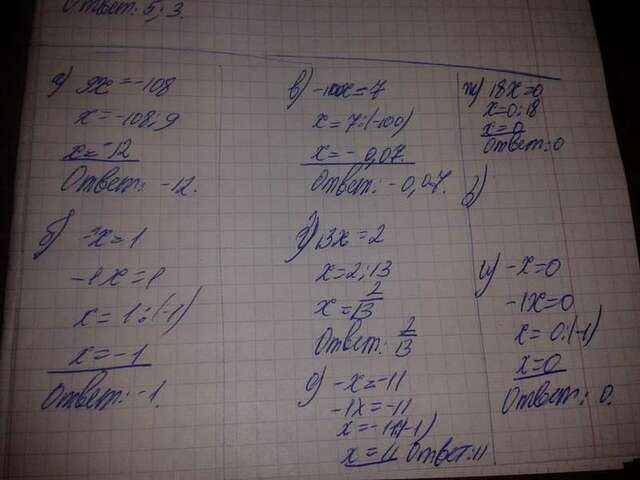 Ответ: 5; 3.
а) 9x = -108
x = -108:9
x = -12
Ответ: -12.
б) -x = 1
-1x = 1
x = 1:(-1)
x = -1
Ответ: -1.
в) -100x = 7
x = 7:(-100)
x = -0,07
Ответ: -0,07.
13x = 2
x = 2:13
x = 2/13
Ответ: 2/13
е) -x = -11
-1x = -11
x = 11 Ответ: 11
ж) 18x = 0
x = 0:18
x = 0
Ответ: 0
и) -x = 0
-1x = 0
x = 0:(-1)
x = 0
Ответ: 0.